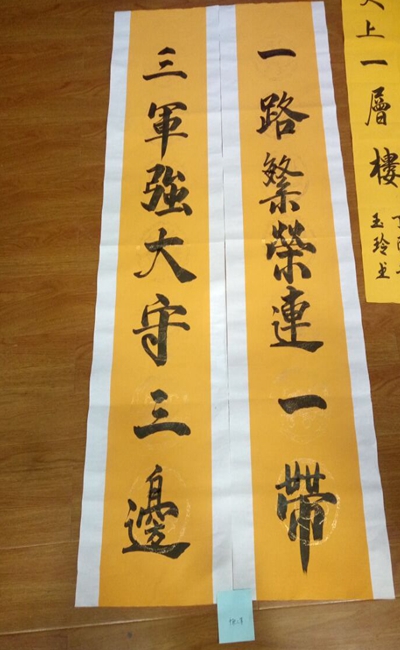 一路繁榮連一帶
三軍強大守三邊
上一層樓
玉玲书